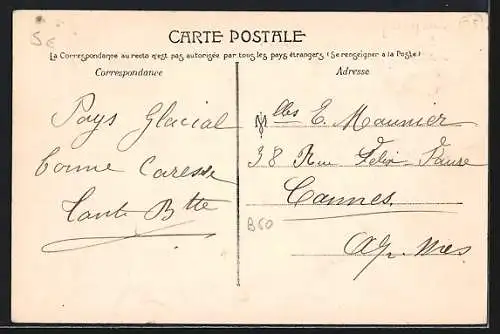 CARTE POSTALE
La Correspondance au recto n'est pas autorisée par tous les pays étrangers (Se renseigner à la Poste)
Correspondance
Adresse
Pays Glacial
bonne Caresse
Tante Btte
Mlles E. Maunier
38 Rue Félix Faure
Cannes
Alp. Mes
B60